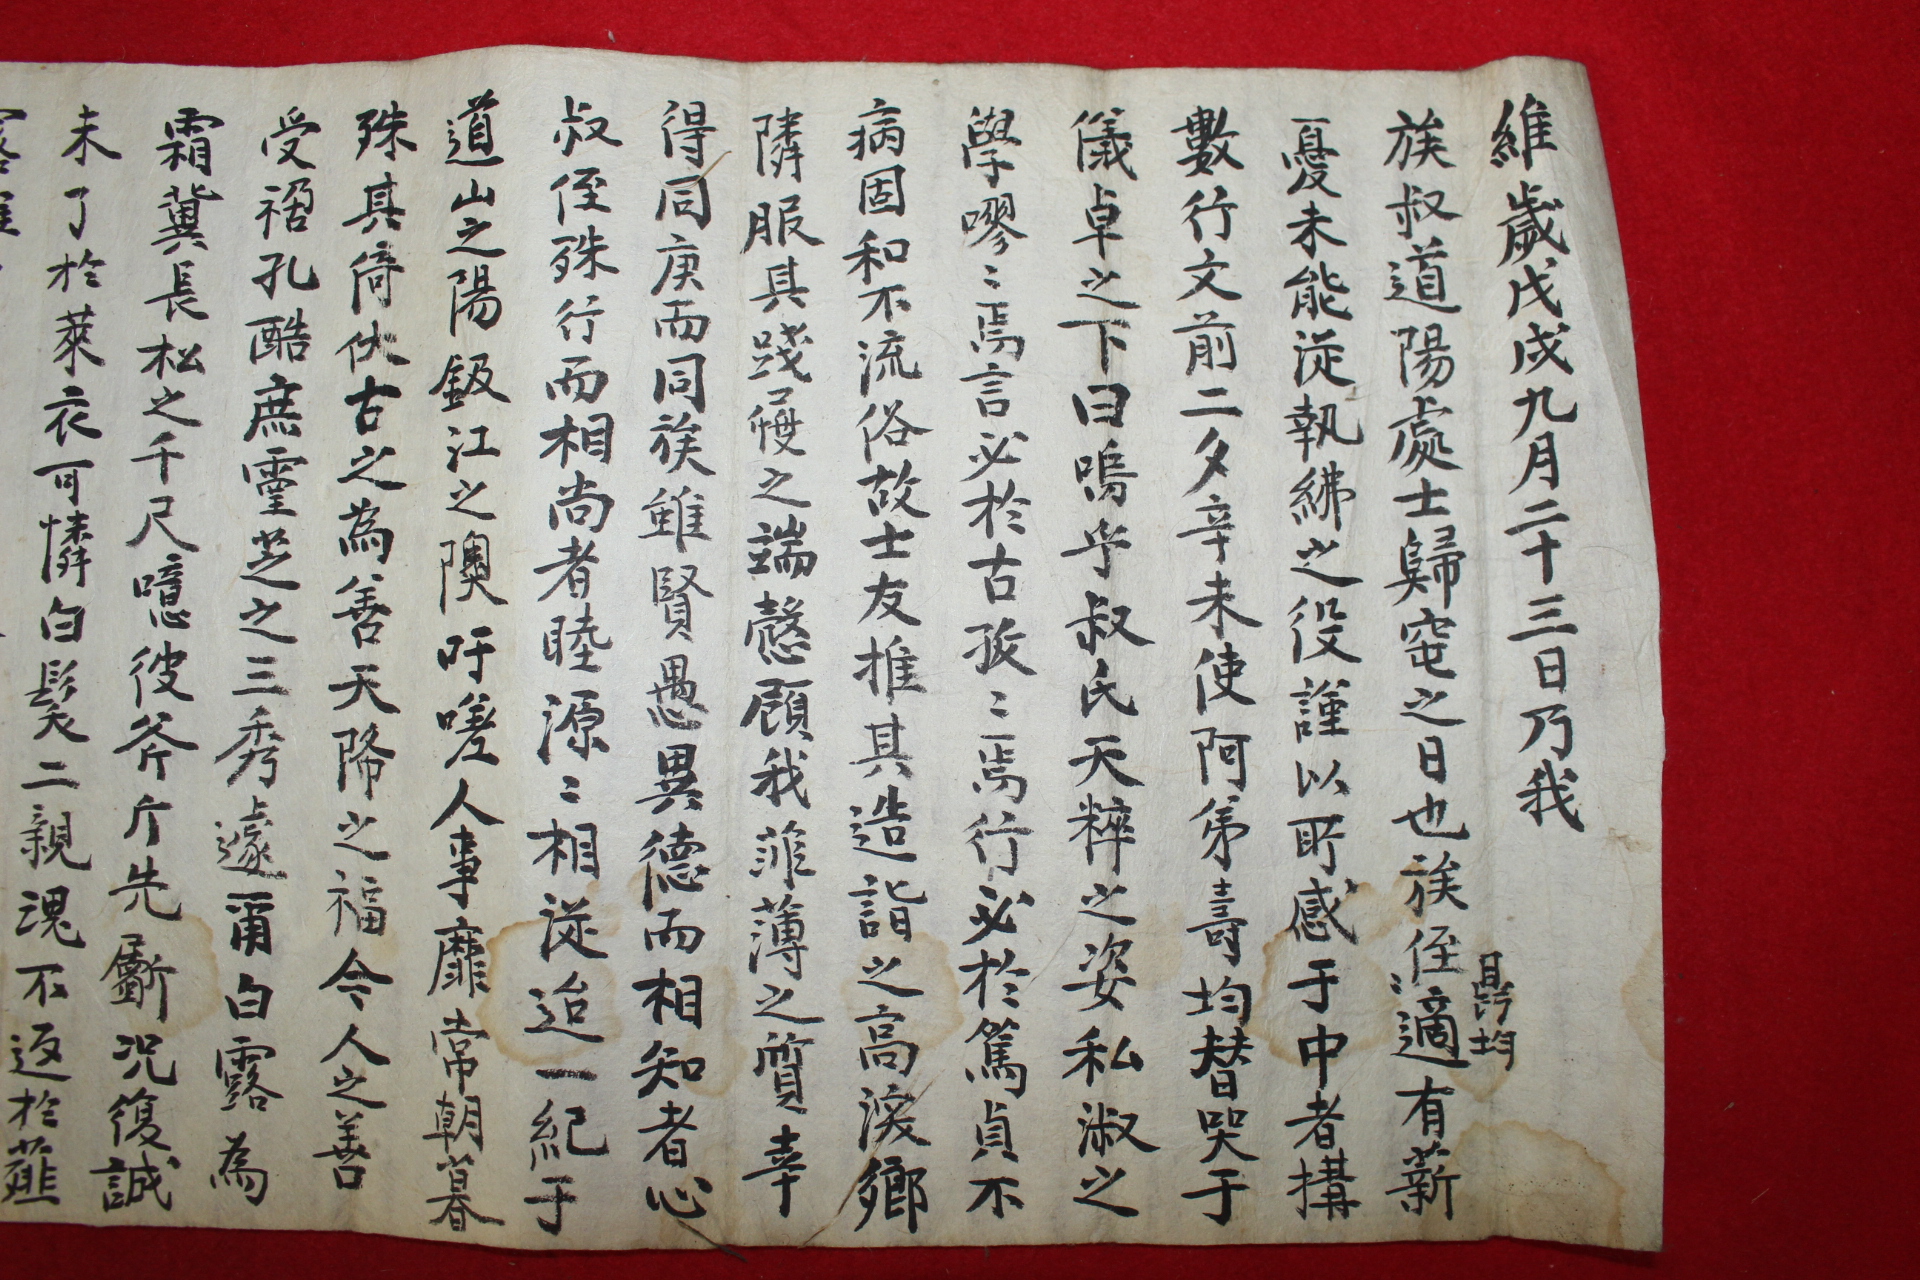 維歲戊戌九月二十三日乃我
族叔道陽處士歸窀之日也族侄鼎均適有薪
憂未能從執紼之役謹以所感于中者搆
數行文前二夕辛未使阿弟壽均替哭于
儀卓之下曰嗚乎叔氏天粹之姿私淑之
學嘐〻焉言必於古孜〻焉行必於篤貞不
病固和不流俗故士友推其造詣之高淚鄉
隣服其踐履之端慤顧我菲薄之質幸
得同庚而同族雖賢愚異德而相知者心
叔侄殊行而相尚者睦源〻相從迨一紀于
道山之陽鈒江之隩吁嗟人事靡常朝暮
殊其倚伏古之為善天降之福今人之善
受禍孔酷庶靈芝之三秀遽爾白露為
霜冀長松之千尺噫彼斧斤先斸況復誠
未了於萊衣可憐白髮二親魂不返於薤